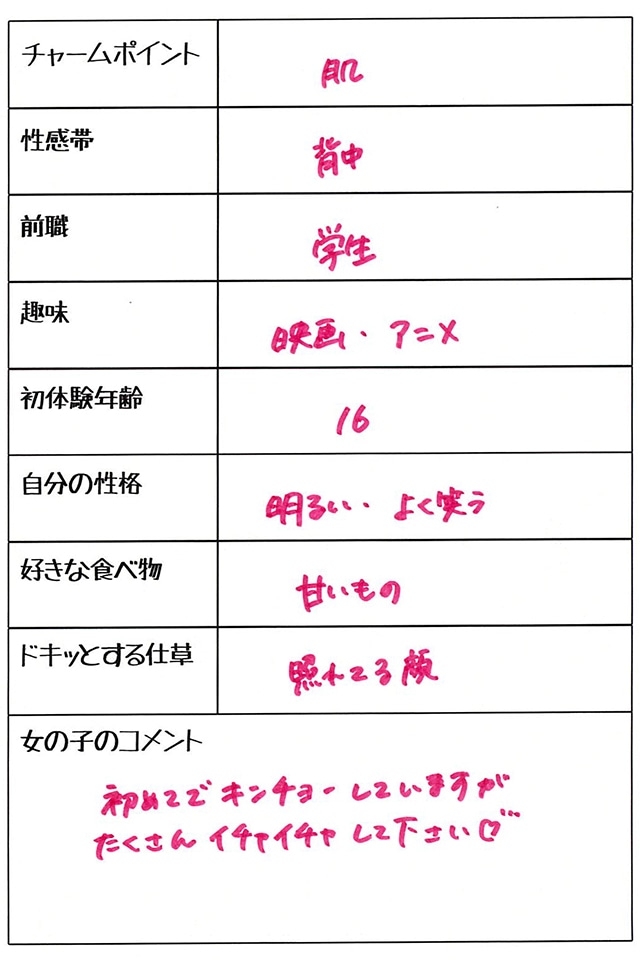 チャームポイント
肌
性感帯
背中
前職
学生
趣味
映画・アニメ
初体験年齢
16
自分の性格
明るい・よく笑う
好きな食べ物
甘いもの
ドキッとする仕草
照れてる顔
女の子のコメント
初めてでキンチョーしていますが
たくさんイチャイチャして下さい♡